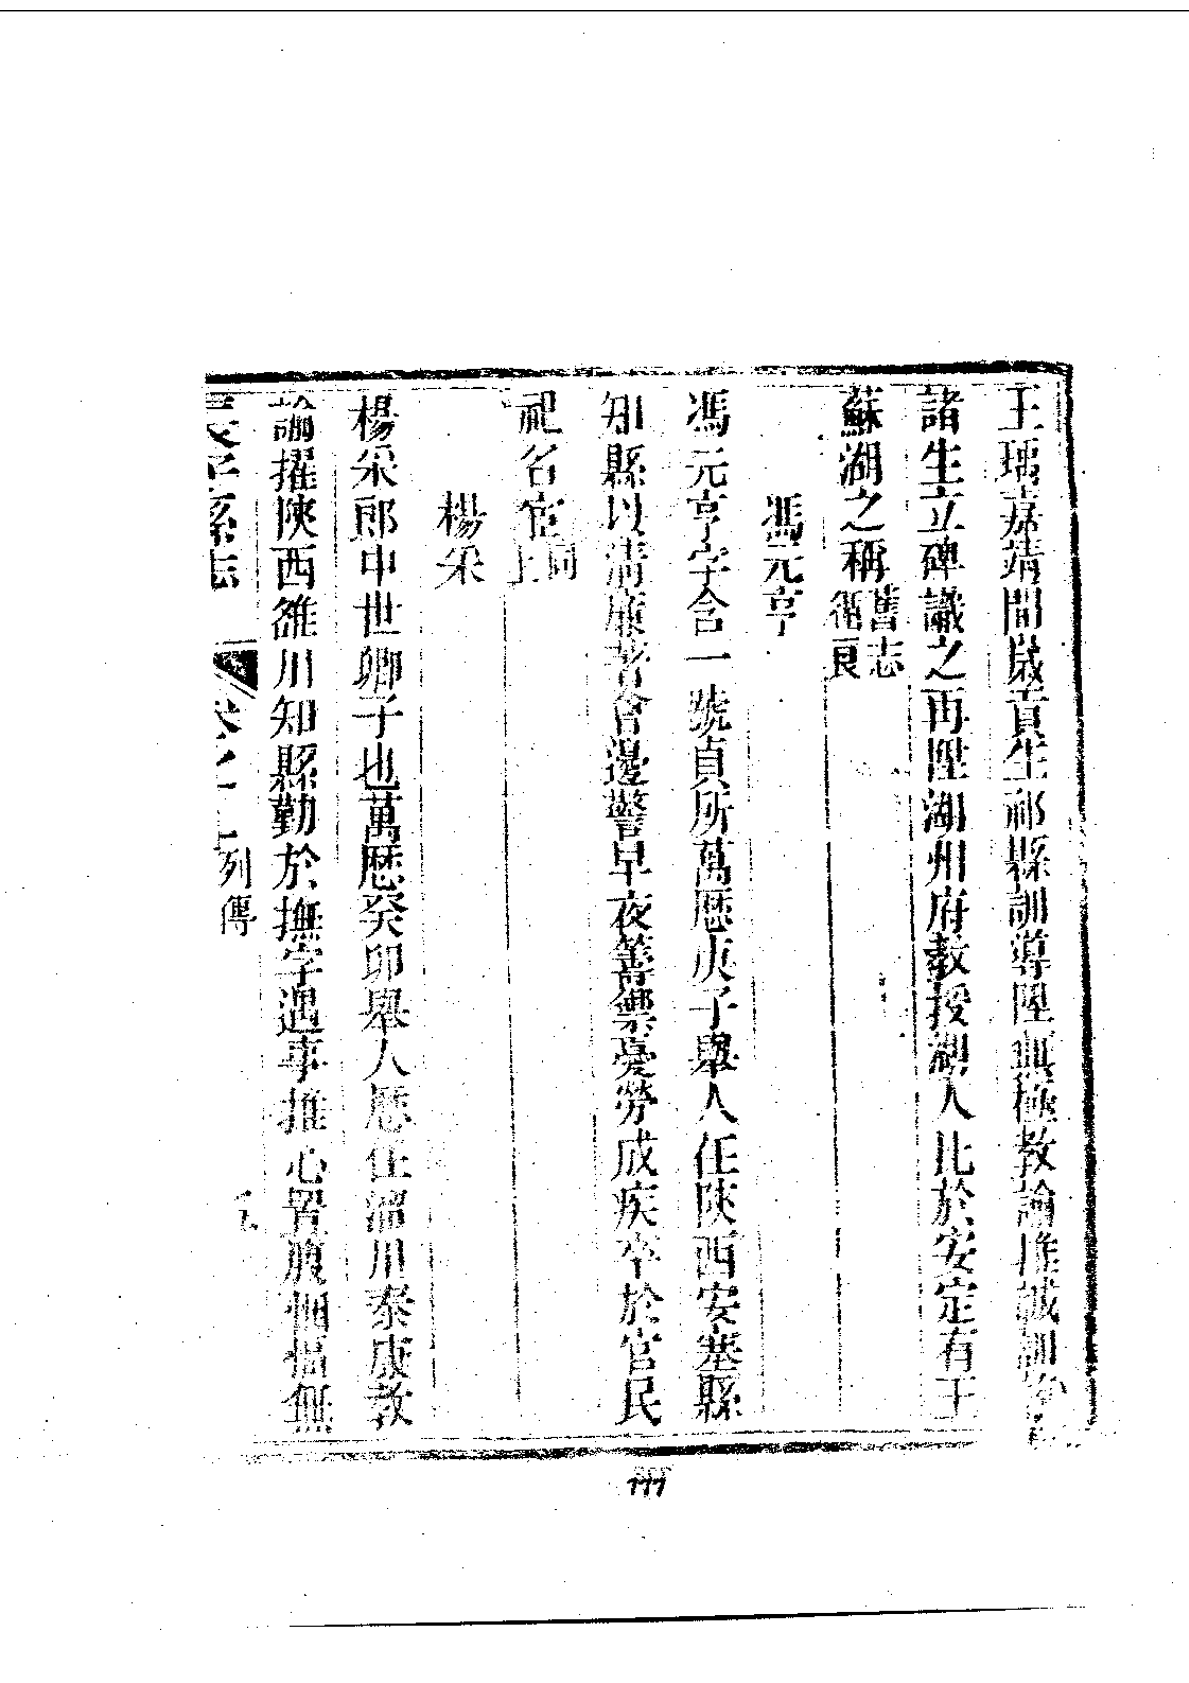 王瑀嘉靖間歲貢生祁縣訓導陞無極教諭推誠訓
諸生立碑議之再陞湖州府教授湖人比於安定有王
蘇湖之稱舊志循良
馮元亨
馮元亨字含一號貞所萬厯庚子舉人任陝西安塞縣
知縣以淸廉著會邊警早夜籌禦憂勞成疾卒於官民
祀名宦同上
楊采
楊采郎中世卿子也萬厯癸卯舉人厯任淄川泰康教
諭擢陝西雒川知縣勤於撫字遇事推心置腹悃愊無
長子縣志
卷之
列傳
五
777